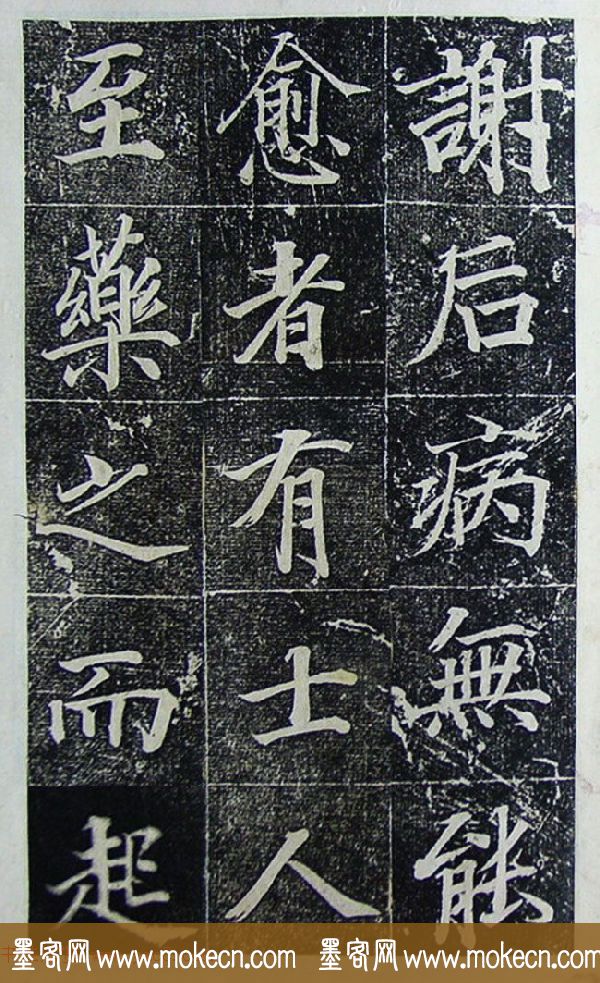 謝后病無能
愈者有士人
至藥之而起
墨客网 www.mokecn.com 墨客网 www.mokecn.com